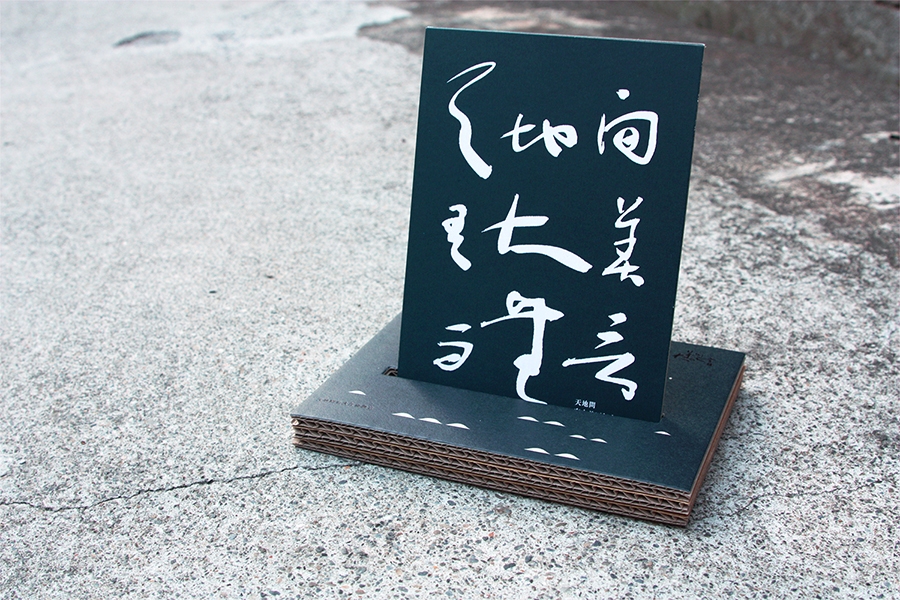 天地間
有大美
而無言
天地間